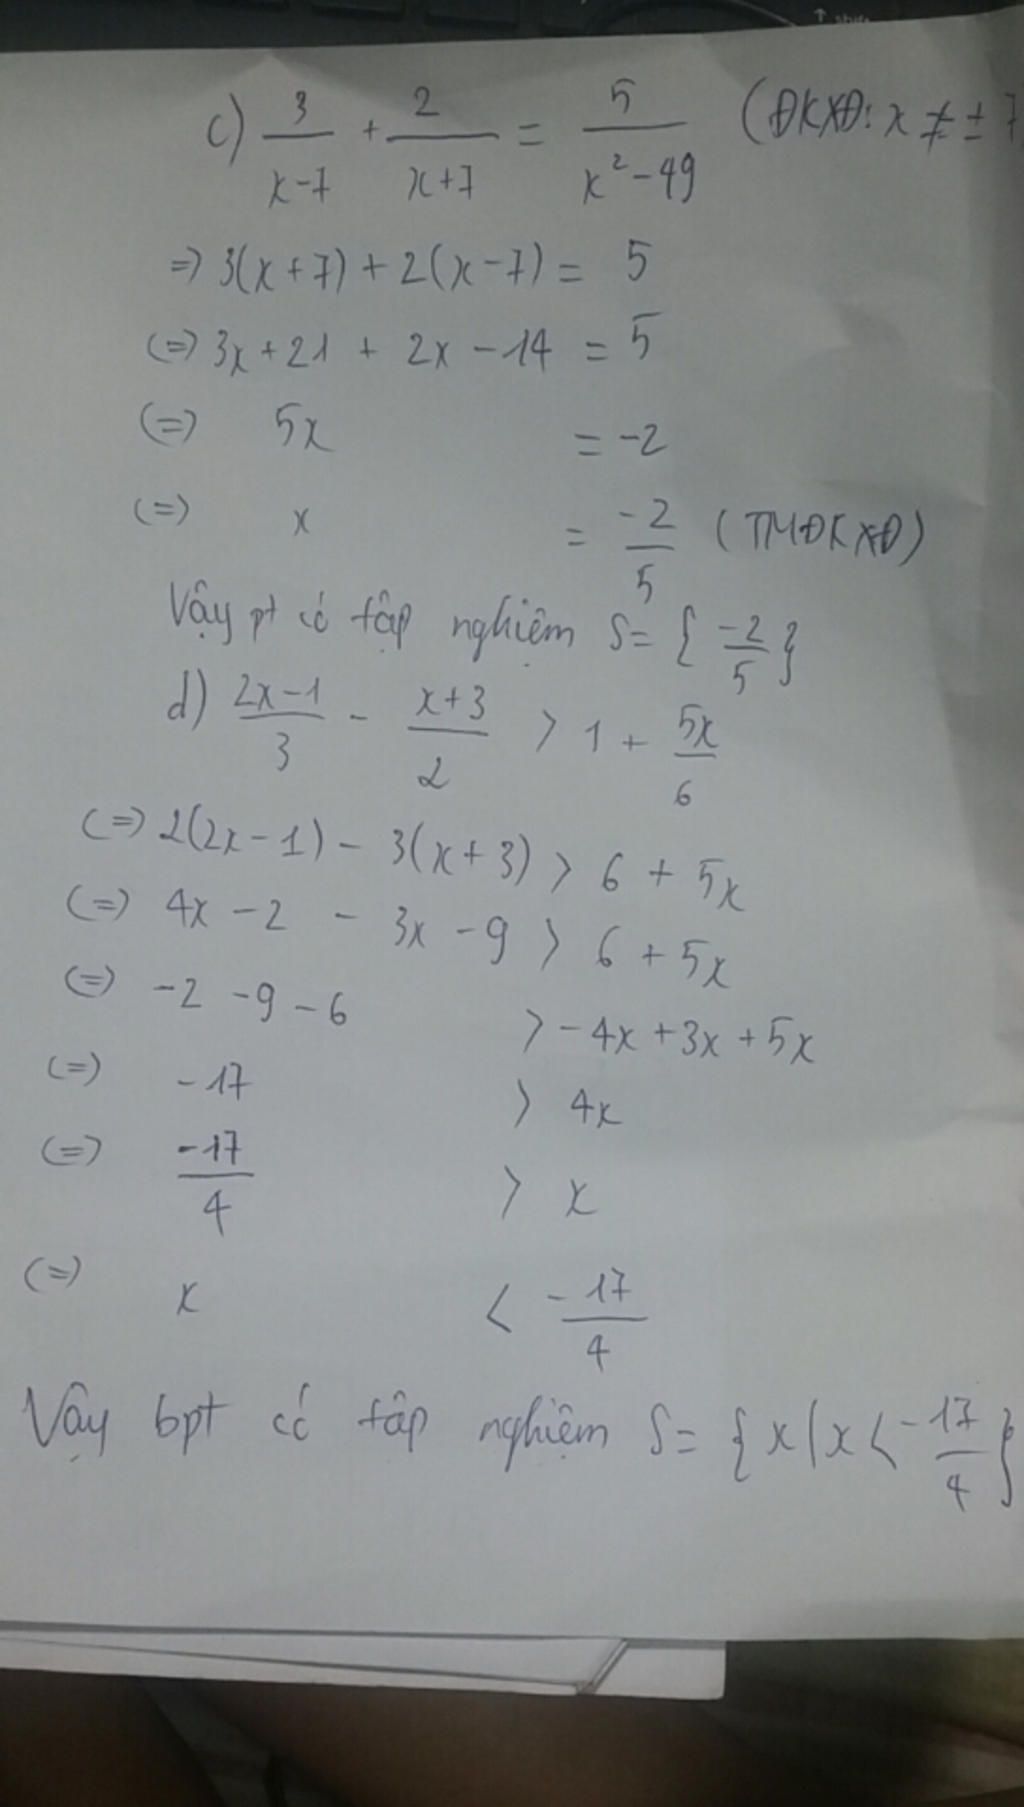 c) 3/(x-7) + 2/(x+7) = 5/(x²-49) (ĐKXĐ: x ≠ ± 7
=> 3(x+7) + 2(x-7) = 5
(=) 3x+21 + 2x-14 = 5
(=) 5x = -2
(=) x = -2/5 (TMĐKXĐ)
Vậy pt có tập nghiệm S= { -2/5 }
d) (2x-1)/3 - (x+3)/2 > 1 + 5x/6
(=) 2(2x-1) - 3(x+3) > 6 + 5x
(=) 4x - 2 - 3x - 9 > 6 + 5x
(=) -2 -9 -6 > -4x +3x +5x
(=) -17 > 4x
(=) -17/4 > x
(=) x < -17/4
Vậy bpt có tập nghiệm S= { x | x < -17/4 }